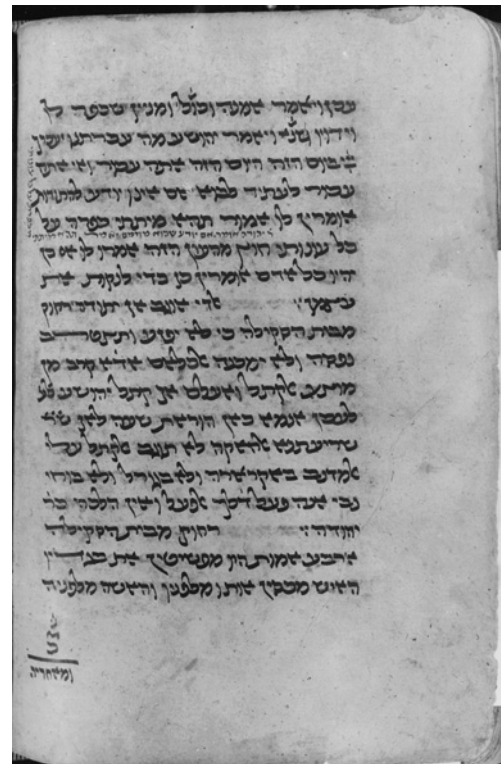 עכן ויאמר אמנה וכול' ומנין שכפרה לו
וידויו שנ' ויאמר יהושע מה עכרתנו
ביום הזה היום הזה אתה עכור ואי אתה
עכור לעתיד לבוא אם אינו יודע להתודות
אומרין לו אמור תהא מיתתי כפרה על
ר' יהודה אומר אם יודע שהוא מזומם אומר תהא מיתתי
כל עונותי חוץ מהעון הזה אמרו לו אם כן
יהיו כל אדם אומרין כן כדי לנקות את
עצמן׃ אלדי אוגב אן יתודה רחוק
מבית הסקילה כי לא יפזע
נפסה ולא ימכנה אלכלאם אדא קרב מן
מוצע אלקתל ואעלם אן קתל יהושע
לעכן אנמא כאן הוראת שעה לאן
שריעתנא לא תוגב אלקתל עלי
אלמדנב באקרארה ולא ולא בוחי
נבי אנה פעל דלך אלפעל ואין הלכה כר'
יהודה׃ רחוק מבית הסקילה
ארבע אמות היו מפשיטין את בגדיו
האיש מכסין אותו מלפניו והאשה מלפניה
ומאחריה